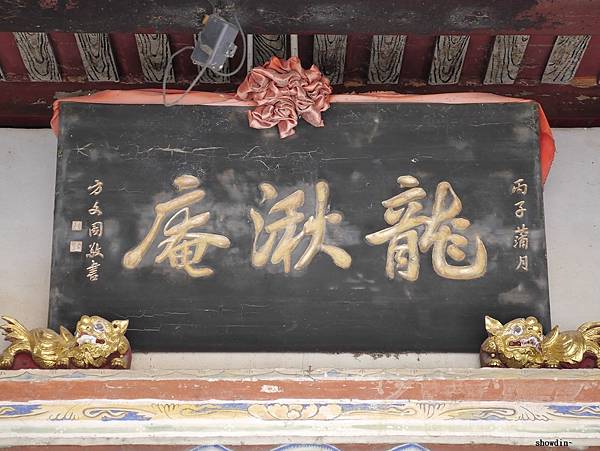 丙子蒲月
龍湫庵
方文圖敬書
showdin~